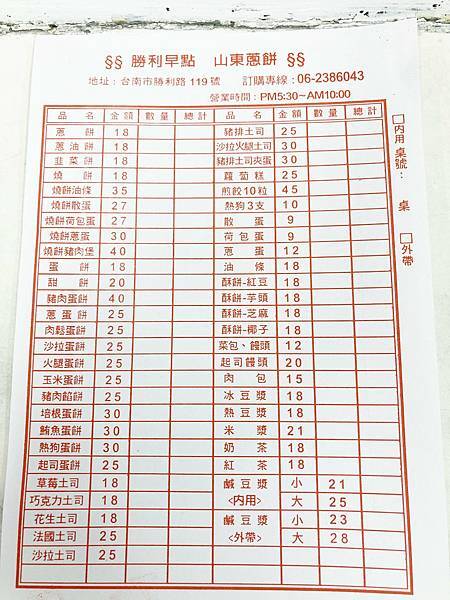 §§ 勝利早點 山東蔥餅 §§
地址：台南市勝利路 119 號 訂購專線：06-2386043
營業時間：PM5:30~AM10:00
品名 金額 數量 總計 品名 金額 數量 總計
蔥餅 18 豬排土司 25
蔥油餅 18 沙拉火腿土司 30
韭菜餅 18 豬排土司夾蛋 30
燒餅 18 蘿蔔糕 25
燒餅油條 35 煎餃10粒 45
燒餅散蛋 27 熱狗3支 10
燒餅荷包蛋 27 散蛋 9
燒餅蔥蛋 30 荷包蛋 9
燒餅豬肉堡 40 蔥蛋 12
蛋餅 18 油條 18
甜餅 20 酥餅-紅豆 18
豬肉蛋餅 40 酥餅-芋頭 18
蔥蛋餅 25 酥餅-芝麻 18
肉鬆蛋餅 25 酥餅-椰子 18
沙拉蛋餅 25 菜包、饅頭 12
火腿蛋餅 25 起司饅頭 20
玉米蛋餅 25 肉包 15
豬肉餡餅 25 冰豆漿 18
培根蛋餅 30 熱豆漿 18
鮪魚蛋餅 30 米漿 21
熱狗蛋餅 30 奶茶 18
起司蛋餅 25 紅茶 18
草莓土司 18 鹹豆漿 小 21
巧克力土司 18 <內用> 大 25
花生土司 18 鹹豆漿 小 23
法國土司 25 <外帶> 大 28
沙拉土司 25
□內用 桌號： 桌
□外帶